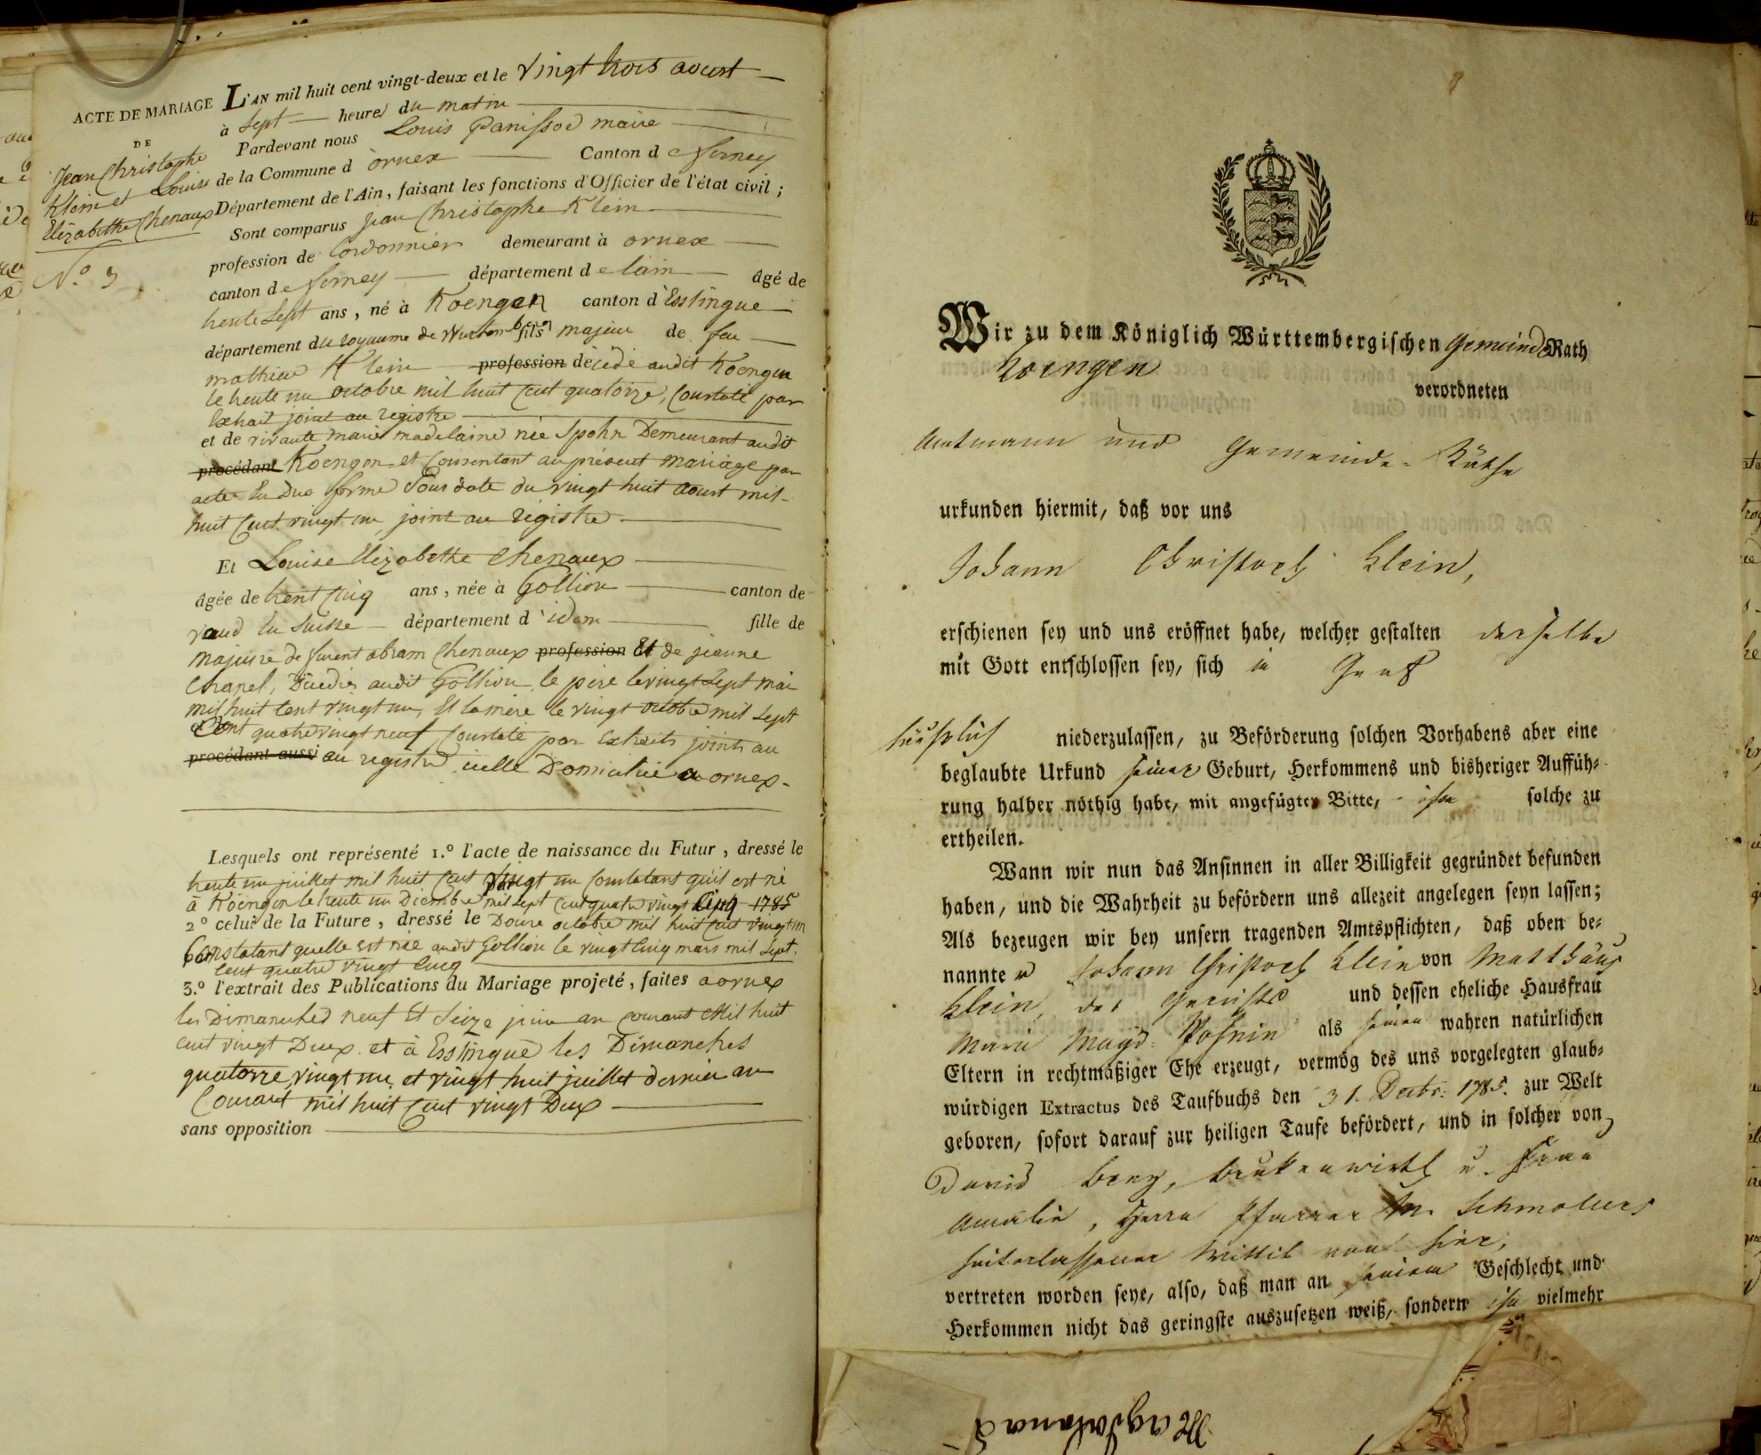 ACTE DE MARIAGE
DE
Jean Christophe
Klein et Louise
Elizabethe Chenaux
N.º 3
L'AN mil huit cent vingt-deux et le vingt trois aoust
à Sept heure du matin
Pardevant nous Louis Panissod maire
de la Commune d'ornex Canton de ferney
Département de l'Ain, faisant les fonctions d'Officier de l'état civil ;
Sont comparus jean Christophe Klein
profession de Cordonnier demeurant à ornex
canton de ferney département de lain âgé de
trente Sept ans, né à Koengen canton d'Esslingue
département du royaume de Wurtemb fils majeur de feu
mathieu Klein profession décédé audit Koengen
le trente un octobre mil huit Cent quatorze, Constaté par
Extrait joint au registre
et de vivante marie madelaine née Spohn Demeurant audit
procédant Koengen et Consentant au présent mariage par
acte En Due forme Sous date du vingt huit aoust mil
huit Cent vingt un joint au registre
Et Louise Elizabethe Chenaux
âgée de trent Cinq ans, née à Gollion canton de
vaud En Suisse département d'idem fille de
majeure de furent abram Chenaux profession Et de jeanne
Chanel, Décédés audit Gollion le père le vingt Sept mai
mil huit Cent vingt un, Et la mère le vingt octobre mil Sept
Cent quatre vingt neuf Constaté par Extraits joints au
procédant aussi au registre icelle Domiciliée a ornex
Lesquels ont représenté 1.º l'acte de naissance du Futur, dressé le
trente un juillet mil huit Cent vingt un Constatant qu'il est né
à Koengen le trente un Décembre mil Sept Cent quatre vingt Cinq 1785
2º celui de la Future, dressé le Douze octobre mil huit Cent vingt un
Constatant quelle est née audit Gollion le vingt Cinq mars mil Sept
Cent quatre vingt Cinq
3.º l'extrait des Publications du Mariage projeté, faites a ornex
les Dimanches neuf Et Seize juin an Courant Mil huit
Cent vingt Deux et à Esslingue les Dimanches
quatorze, vingt un et vingt huit juillet dernier an
Courant mil huit Cent vingt Deux
sans opposition
Wir zu dem Königlich Württembergischen Gemeinde Rath
Koengen
verordneten
Amtmann und Gemeinde-Räthe
urkunden hiermit, daß vor uns
Johann Christoph Klein,
erschienen sey und uns eröffnet habe, welcher gestalten derselbe
mit Gott entschlossen sey, sich in Genf
häuslich niederzulassen, zu Beförderung solchen Vorhabens aber eine
beglaubte Urkund seiner Geburt, Herkommens und bisheriger Aufführ-
rung halber nöthig habe, mit angefügter Bitte, ihm solche zu
ertheilen.
Wann wir nun das Ansinnen in aller Billigkeit gegründet befunden
haben, und die Wahrheit zu befördern uns allezeit angelegen seyn lassen;
Als bezeugen wir bey unsern tragenden Amtspflichten, daß oben be-
nannter Johann Christoph Klein von Matthäus
Klein, des Gerichts und dessen eheliche Hausfrau
Maria Magd. Spohnin als seinen wahren natürlichen
Eltern in rechtmäßiger Ehe erzeugt, vermög des uns vorgelegten glaub-
würdigen Extractus des Taufbuchs den 31. Decbr. 1785. zur Welt
geboren, sofort darauf zur heiligen Taufe befördert, und in solcher von
David Berg, Brukenwirth u. Frau
Amalie, Herrn Pfarrer M. Schmollers
hinterlassener Wittib von hier,
vertreten worden seye, also, daß man an seinem Geschlecht und
Herkommen nicht das geringste auszusetzen weiß, sondern ihn vielmehr
Magdalena